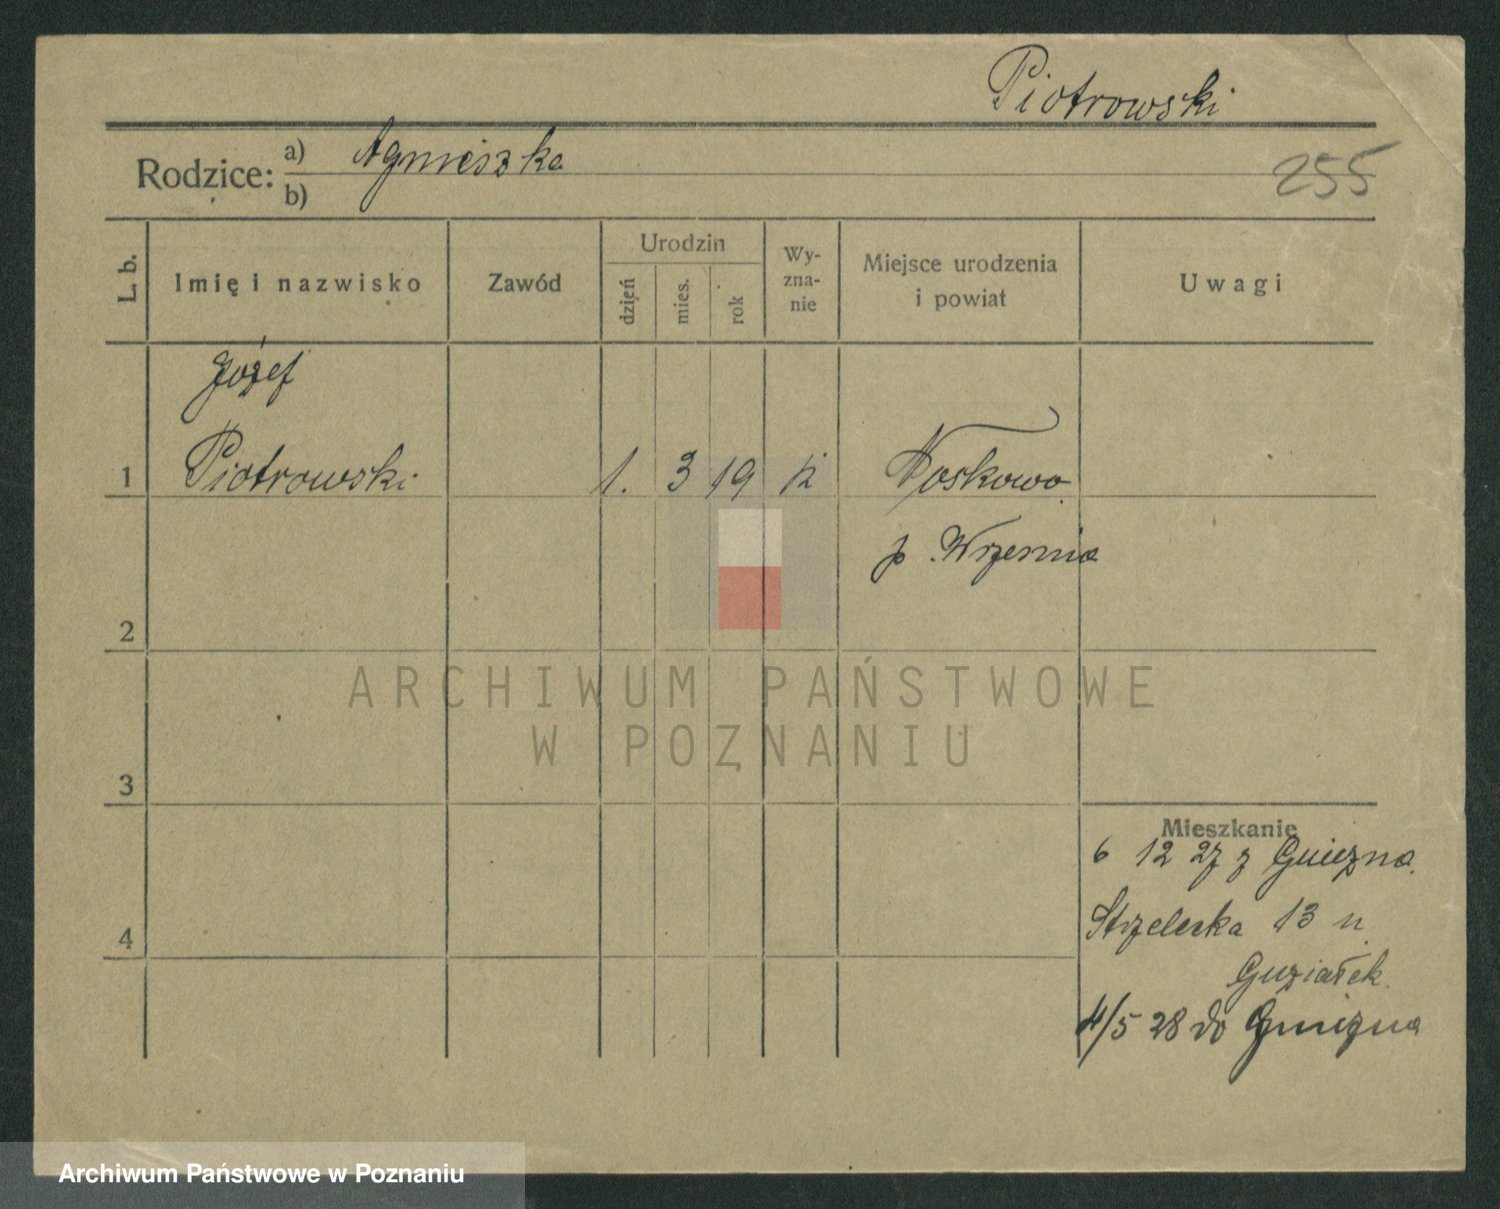 Piotrowski
Rodzice: a) Agnieszka
b)
255
L. b.
Imię i nazwisko
Zawód
Urodzin
dzień
mies.
rok
Wy-
zna-
nie
Miejsce urodzenia
i powiat
Uwagi
Józef
1 Piotrowski 1. 3 19 k Noskowo
p. Wrzesnia
2
ARCHIWUM PAŃSTWOWE
W POZNANIU
3
Mieszkanie
6 12 27 z Gniezna
Strzelecka 13 u
4
Guziałek
4/5 28 do Gniezna
Archiwum Państwowe w Poznaniu